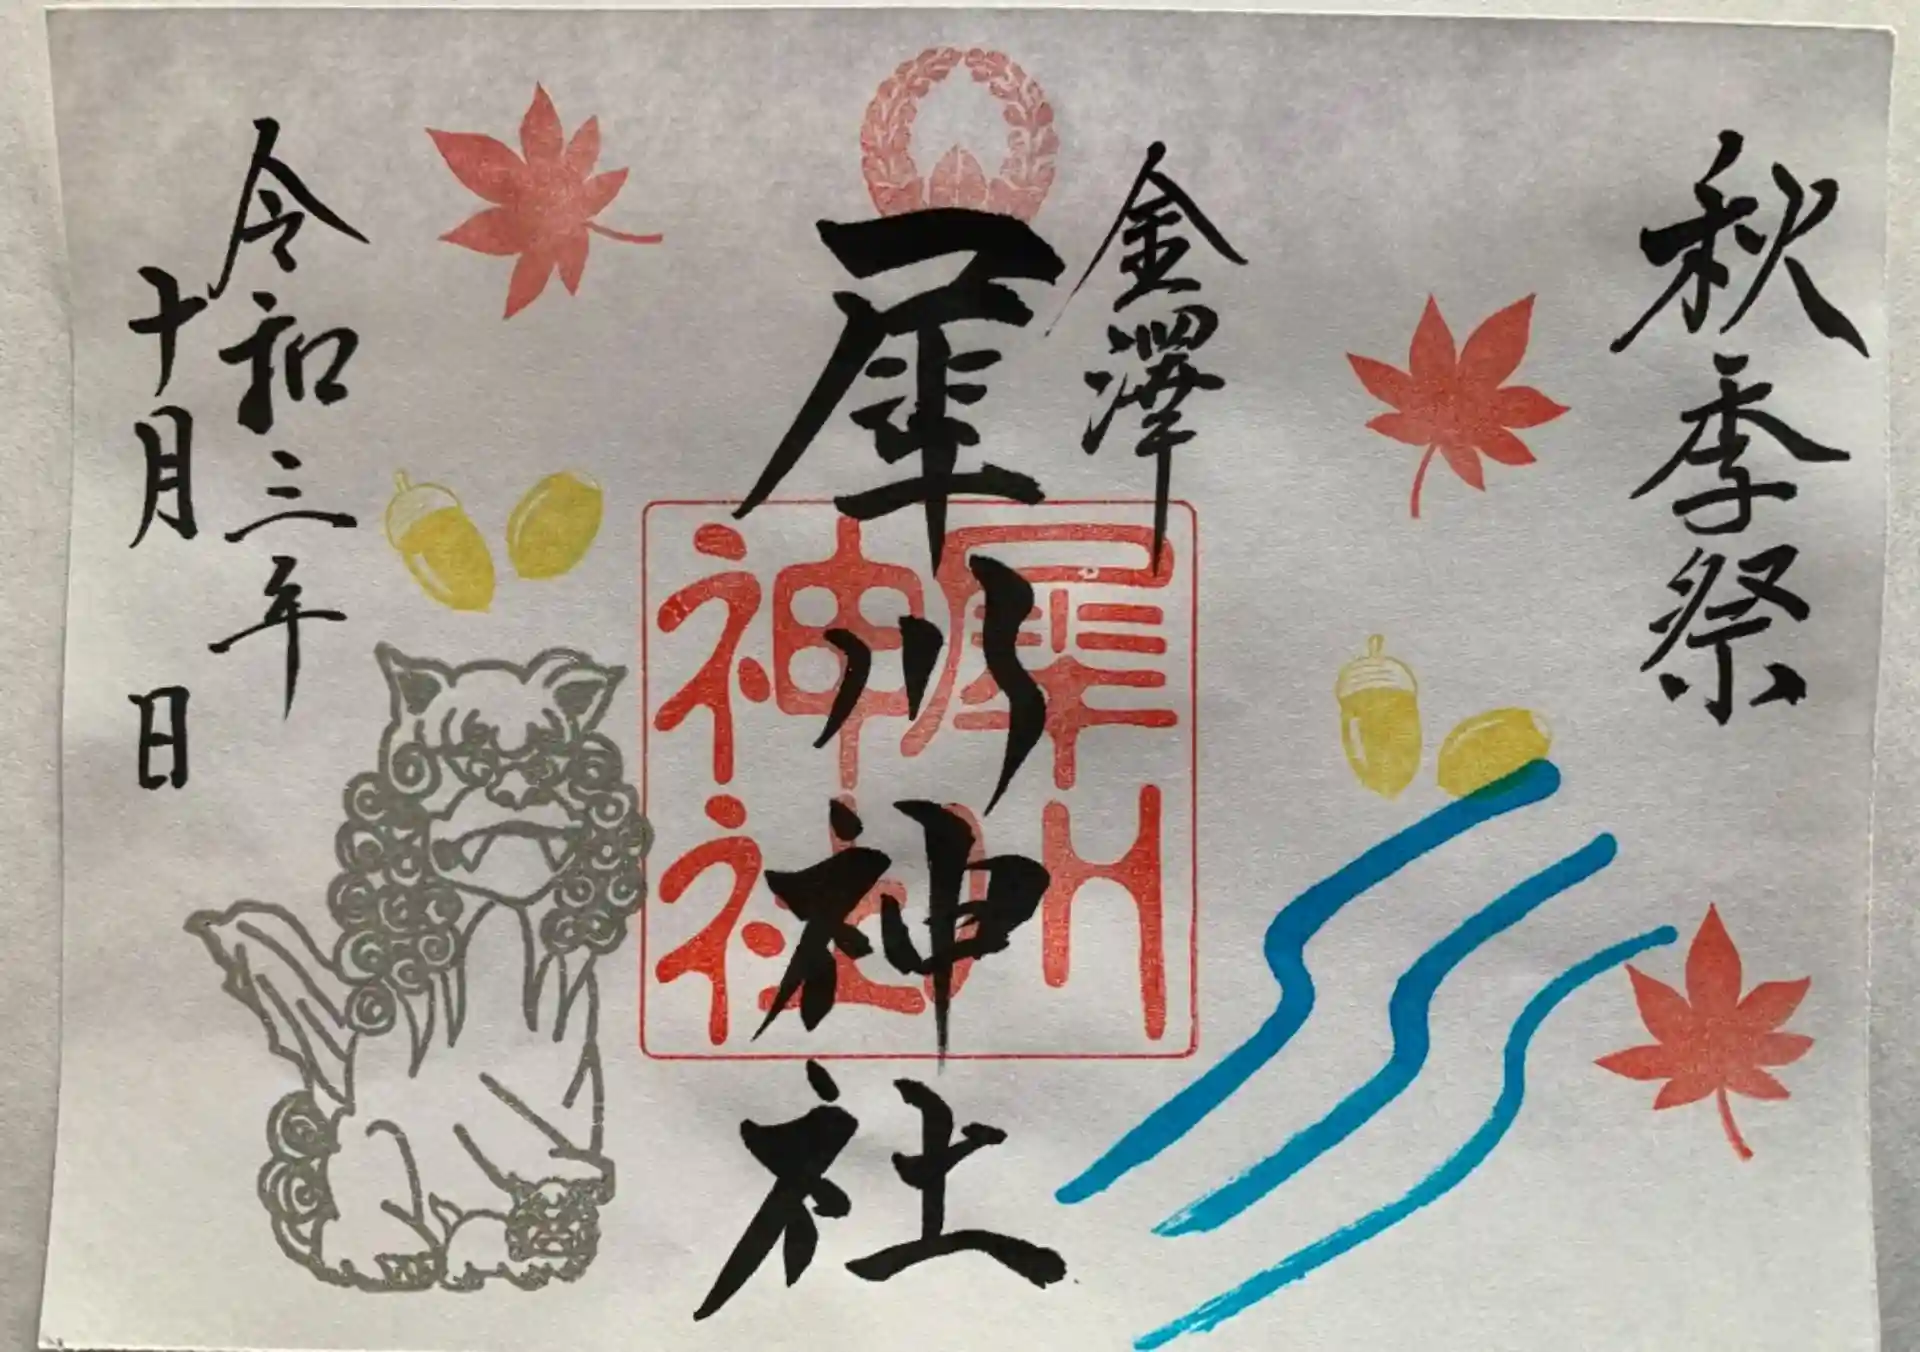 秋季祭
金澤
犀川神社
犀川
神社
令和三年
十月　日